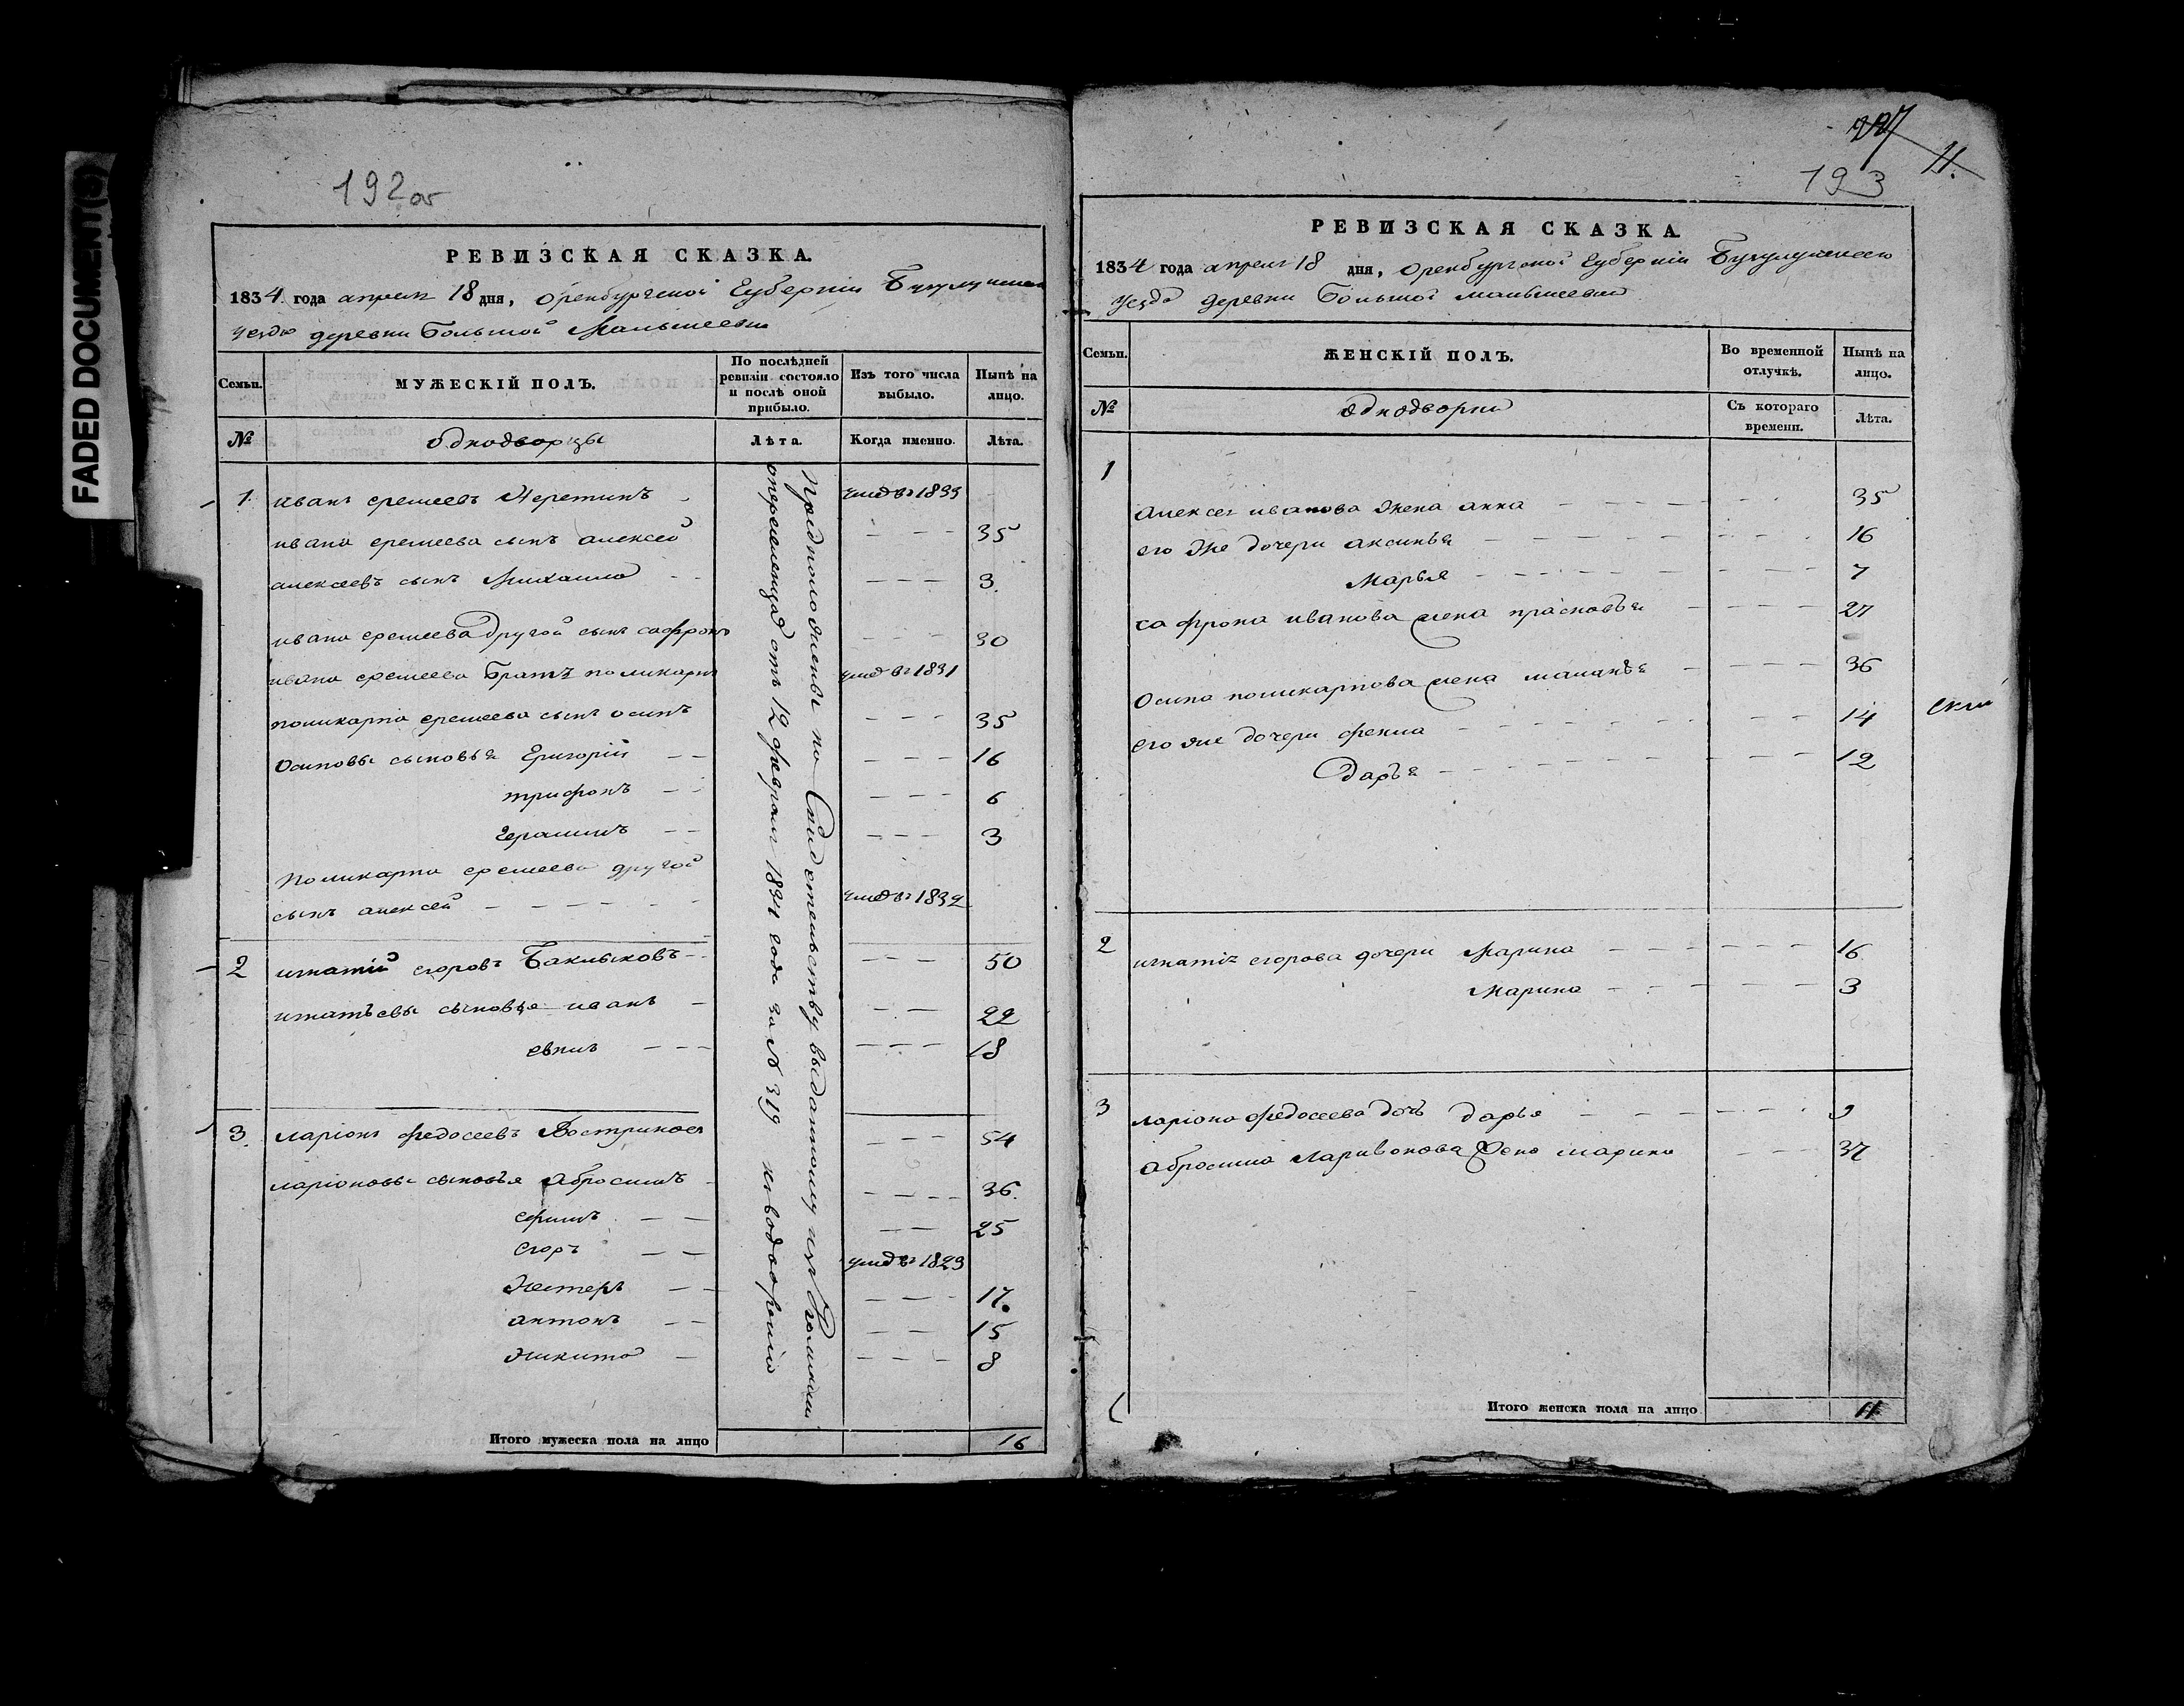 FADED DOCUMENT(S)
192об
РЕВИЗСКАЯ СКАЗКА.
1834 года апреля 18 дня, Оренбургской Губернии
уезда деревни Большой Малышевки
Семьи.
МУЖЕСКІЙ ПОЛЪ.
По послѣдней ревизіи состояло и послѣ оной прибыло.
Изъ того числа выбыло.
Нынѣ на лицо.
№
Однодворцы
Лѣта.
Когда именно.
Лѣта.
1 иванъ еремеевъ умер въ 1833
ивана еремеева сынъ алексей 35
алексеевъ сынъ Михаила 3
ивана еремеева другой сынъ сафронъ 30
ивана еремеева братъ поликарпъ умер въ 1831
поликарпа еремеева сынъ осипъ 35
Осиповы сыновья Григорій 16
трифонъ 6
Герасимъ 3
Поликарпа еремеева другой
сынъ алексей умер въ 1832
2 игнатий егоровъ Баклыковъ 50
игнатьевы сыновья иванъ 22
18
3 ларіонъ федосеевъ Востриковъ 54
ларіоновы сыновья Абросимъ 36
ефимъ 25
егоръ умер въ 1829
Нестеръ 17
антонъ 15
Никита 8
по Свидетельству выданному изъ
отъ 12 февраля 1834 года за № 319
Итого мужеска пола на лицо 16
227
11.
193
РЕВИЗСКАЯ СКАЗКА
1834 года апреля 18 дня, Оренбургской Губерніи
уезда деревни Большой малышевки
Семьи.
ЖЕНСКІЙ ПОЛЪ.
Во временной отлучкѣ.
Нынѣ на лицо.
№
Однодворки
Съ котораго времени.
Лѣта.
1
алексея иванова жена анна 35
его же дочери аксинья 16
Марья 7
сафрона иванова жена прасковья 27
Осипа поликарпова жена маланья 36
его же дочери фекла 14
Дарья 12
2 игнатія егорова дочери Марина 16
Марина 3
3 ларіона федосеева дочь дарья 9
Абросима Ларивонова жена марина 37
Итого женска пола на лицо 11